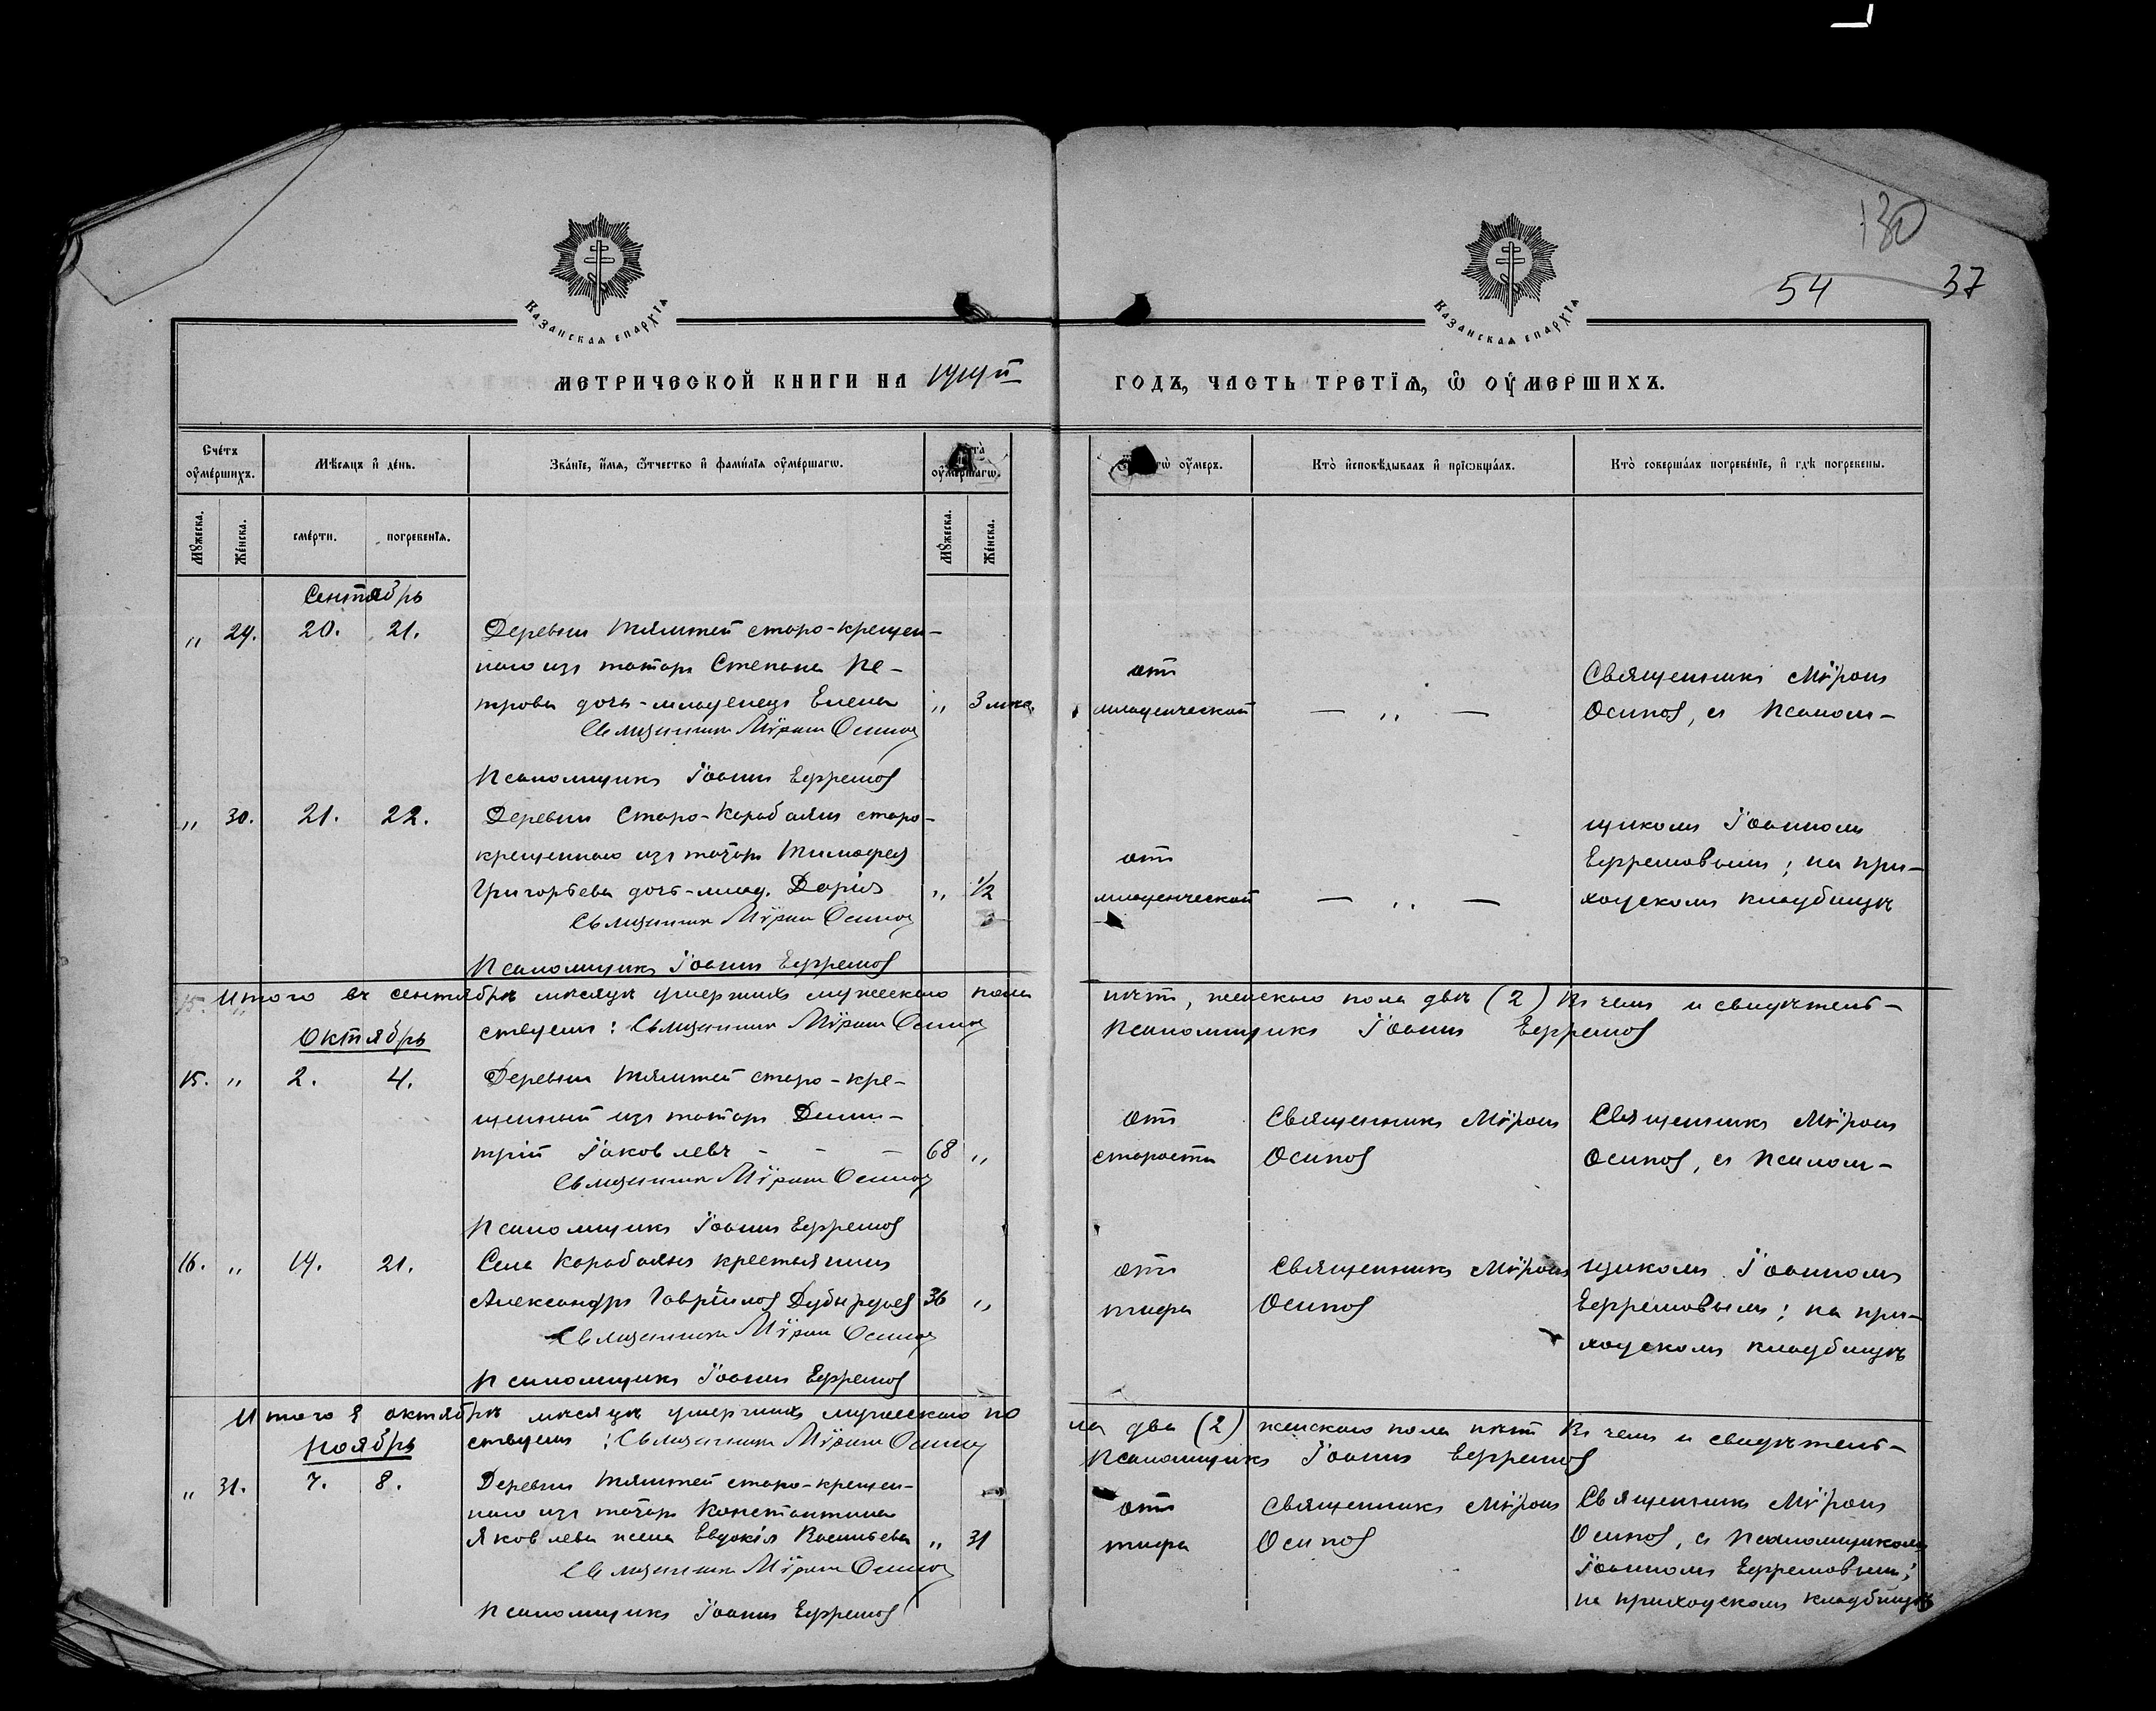 130
54 37
Казанская епархїя
Казанская епархїя
Метрической книги на 1919й
годъ, часть третїѧ, ѡ оумершихъ.
Счетъ оумершихъ.
Мѣсяцъ и день.
Званїе, имя, ѡтчество и фамилїя оумершагѡ.
оумершагѡ.
оумеръ.
Кто исповѣдывалъ и прїѡбщалъ.
Кто совершалъ погребенїе, и гдѣ погребены.
Мꙋжеска.
Женска.
смерти.
погребенїя.
Мꙋжеска.
Женска.
Сентябрь
„ 29. 20. 21. Деревни Тямтей старо-крещен-
наго изъ татаръ Степана Пе-
трова дочь-младенецъ Елена „ 3 мѣс.
Священникъ Мѵронъ Осипов
Псаломщикъ Іоаннъ Ефремов
от
младенческой
— „ —
Священникъ Мѵронъ
Осипов, съ Псалом-
„ 30. 21. 22. Деревни Старо-Карабаянъ старо-
крещеннаго изъ татаръ Тимофея
Григорьева дочь-млад. Дарія „ 1/2
Священникъ Мѵронъ Осипов
Псаломщикъ Іоаннъ Ефремов
от
младенческой
— „ —
щикомъ Іоанномъ
Ефремовымъ; на при-
ходскомъ кладбищѣ
Итого въ сентябрѣ мѣсяцѣ умершихъ мужескаго пола нѣт, женскаго пола двѣ (2) Въ чемъ и свидѣтель-
ствуемъ: Священникъ Мѵронъ Осипов Псаломщикъ Іоаннъ Ефремов
Октябрь
15. „ 2. 4. Деревни Тямтей старо-кре-
щенный изъ татаръ Дими-
трій Іаковлевъ - - — 68 „
Священникъ Мѵронъ Осипов
Псаломщикъ Іоаннъ Ефремов
от
старости
Священникъ Мѵронъ
Осипов
Священникъ Мѵронъ
Осипов, съ Псалом-
16. „ 19. 21. Села Карабаянъ крестьянинъ
Александръ Гаврїилов 36 „
Священникъ Мѵронъ Осипов
Псаломщикъ Іоаннъ Ефремов
от
тифа
Священникъ Мѵронъ
Осипов
щикомъ Іоанномъ
Ефремовымъ; на при-
ходскомъ кладбищѣ
Итого в октябрѣ мѣсяцѣ умершихъ мужескаго по ла два (2) женскаго пола нѣт Въ чемъ и свидѣтель-
ствуемъ: Священникъ Мѵронъ Осипов Псаломщикъ Іоаннъ Ефремов
Ноябрь
„ 31. 7. 8. Деревни Тямтей старо-крещен-
наго изъ татаръ Константина
Яковлева жена Евдокія Васильева „ 31
Священникъ Мѵронъ Осипов
Псаломщикъ Іоаннъ Ефремов
от
тифа
Священникъ Мѵронъ
Осипов
Священникъ Мѵронъ
Осипов, съ Псаломщикомъ
Іоанномъ Ефремовым;
на приходскомъ кладбищѣ